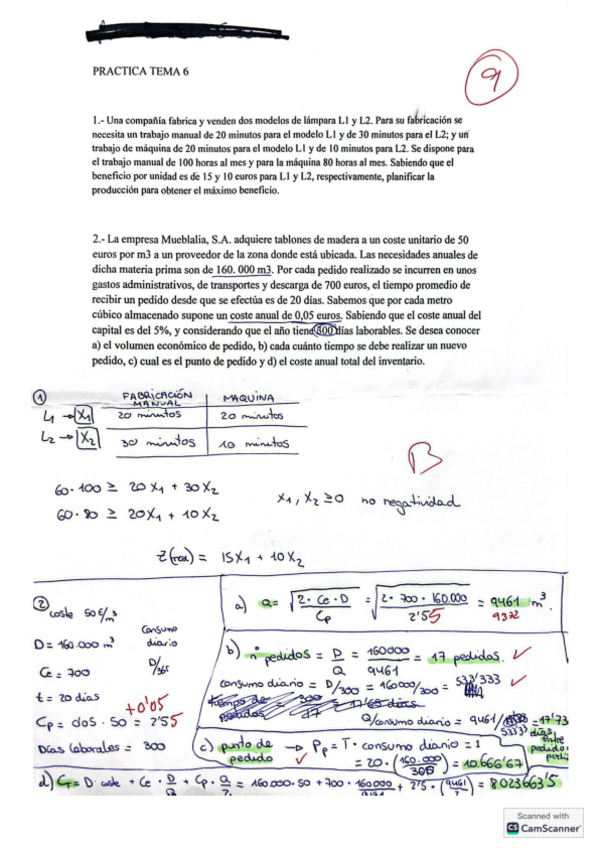 PRACTICA TEMA 6
9
1.- Una compañía fabrica y venden dos modelos de lámpara L1 y L2. Para su fabricación se
necesita un trabajo manual de 20 minutos para el modelo L1 y de 30 minutos para el L2; y un
trabajo de máquina de 20 minutos para el modelo L1 y de 10 minutos para L2. Se dispone para
el trabajo manual de 100 horas al mes y para la máquina 80 horas al mes. Sabiendo que el
beneficio por unidad es de 15 y 10 euros para L1 y L2, respectivamente, planificar la
producción para obtener el máximo beneficio.
2.- La empresa Mueblalia, S.A. adquiere tablones de madera a un coste unitario de 50
euros por m3 a un proveedor de la zona donde está ubicada. Las necesidades anuales de
dicha materia prima son de 160. 000 m3. Por cada pedido realizado se incurren en unos
gastos administrativos, de transportes y descarga de 700 euros, el tiempo promedio de
recibir un pedido desde que se efectúa es de 20 días. Sabemos que por cada metro
cúbico almacenado supone un coste anual de 0,05 euros. Sabiendo que el coste anual del
capital es del 5%, y considerando que el año tiene 300 días laborables. Se desea conocer
a) el volumen económico de pedido, b) cada cuánto tiempo se debe realizar un nuevo
pedido, c) cual es el punto de pedido y d) el coste anual total del inventario.
① FABRICACIÓN MANUAL MAQUINA
L1 → X1 20 minutos 20 minutos
L2 → X2 30 minutos 10 minutos
B
60·100 ≥ 20X1 + 30X2
60·80 ≥ 20X1 + 10X2
X1, X2 ≥0 no negatividad
Z(max) = 15X1 + 10X2
② coste 50€/m³
D = 160.000 m³
Consumo diario D/365
Ce = 700
t = 20 dias
+0'05
Cp = 0'05 · 50 = 2'55
Días laborales = 300
a) Q = √(2·Ce·D / Cp) = √(2·700·160.000 / 2'55) = 9461 m³.
9372
b) nº pedidos = D/Q = 160000/9461 = 17 pedidos. ✓
consumo diario = D/300 = 160000/300 = 533'333 ✓
Q/consumo diario = 9461/533'33 = 17'73 días entre pedido
c) punto de pedido → Pp = T · consumo diario =
✓ = 20 · (160.000/300) = 10.666'67
d) CT = D·coste + Ce · D/Q + Cp · Q/2 = 160.000·50 + 700 · 160000/9461 + 2'5 · (9461/2) = 8.023663'5
Scanned with
CS CamScanner